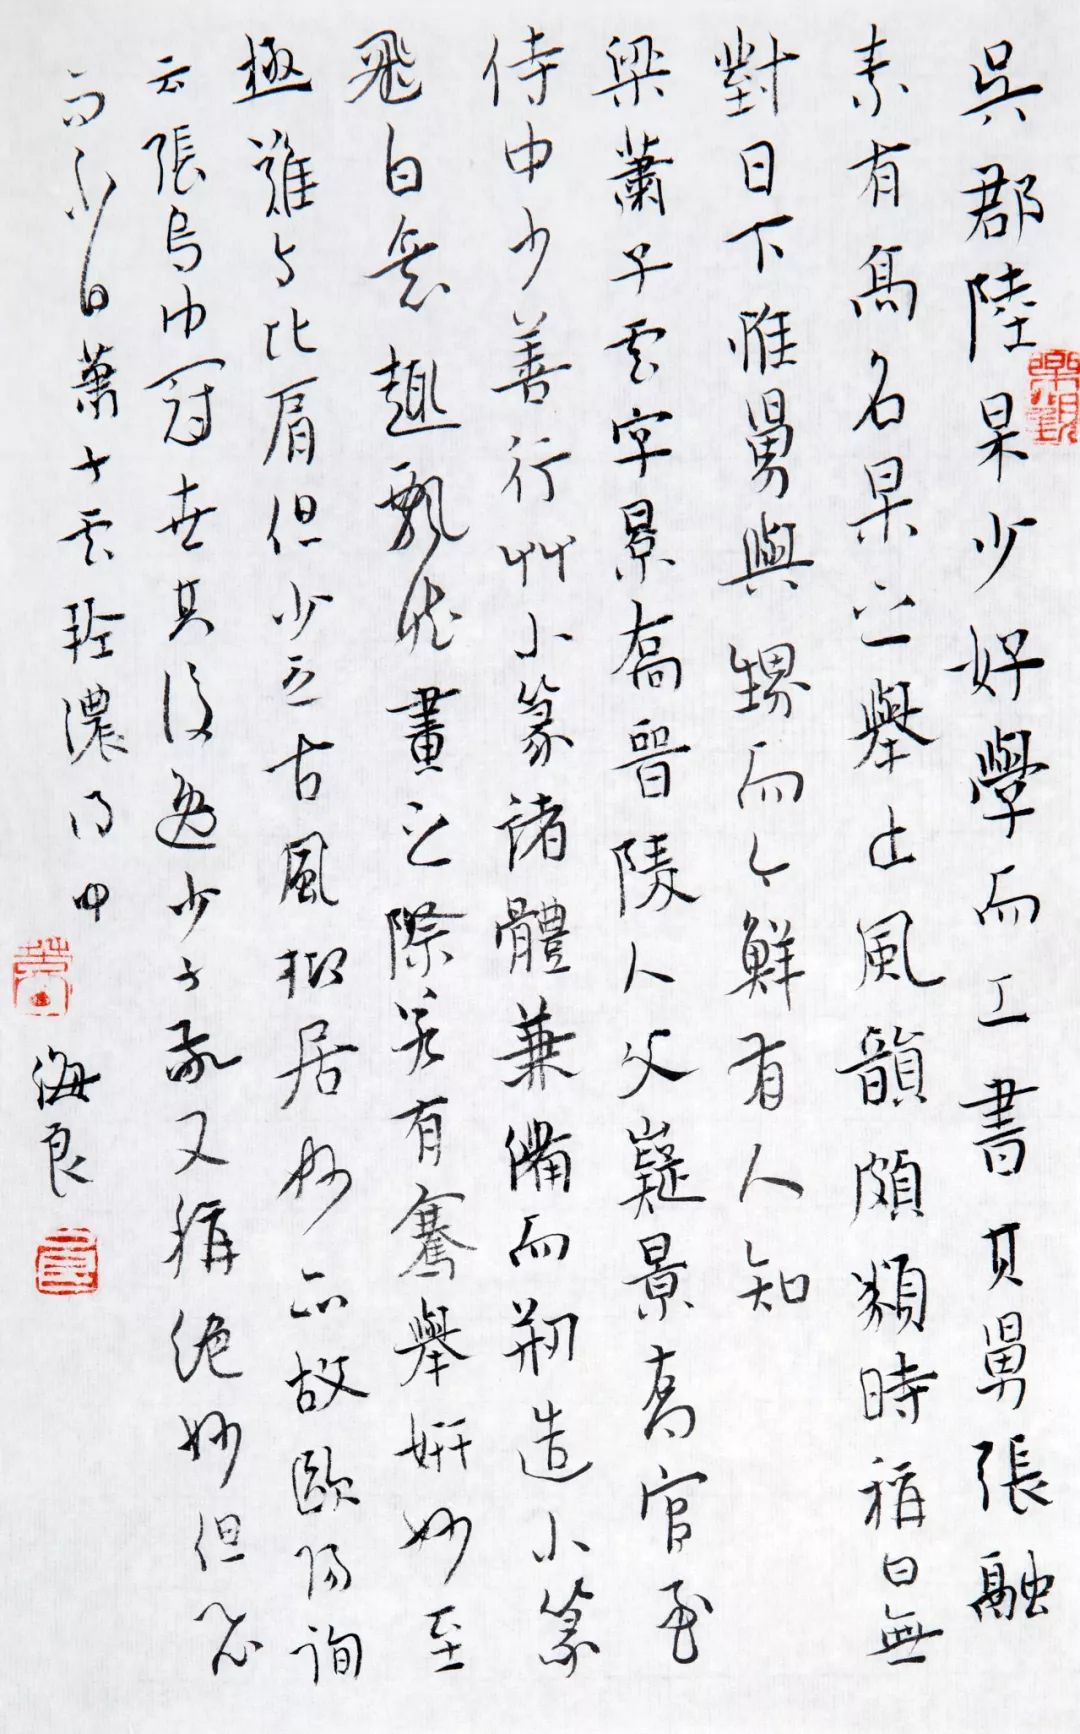 吳郡陸杲少好學而工書其舅張融
素有高名杲之舉止風韻頗類時稱曰無
對日下惟舅與甥而今鮮有人知
梁蕭子雲字景喬晉陵人父嶷景喬官至
侍中少善行艸小篆諸體兼備而剏造小篆
飛白意趣飄然畫之際若有騫舉妍妙至
極難與比肩但少乏古風抑居妙品故歐陽詢
云張烏巾冠世其後逸少子敬又稱絕妙但飛
而不白蕭子雲輕濃得中
海良